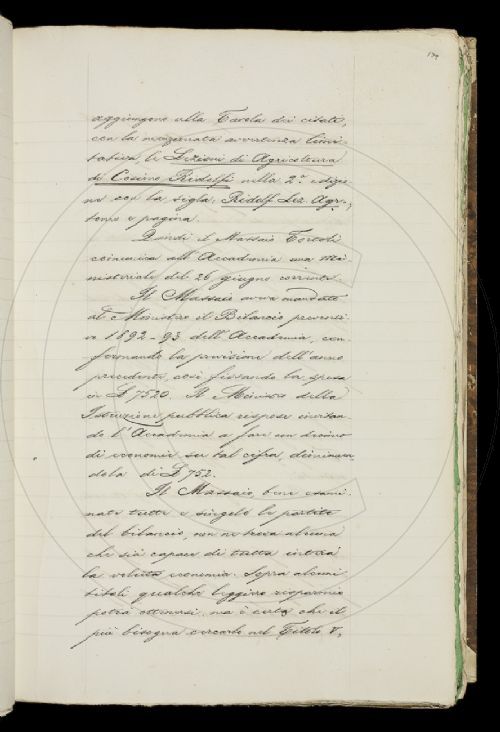 aggiungere alla Tavola dei citati,
con la menzionata avvertenza limi-
tativa le Lezioni di Agricoltura
di Cosimo Ridolfi nella 2ª edizio
ne con la sigla, Ridolf. Lez. Agr.,
tomo e pagina.
Quindi il Massaio Tortoli
comunica all'Accademia una Mi-
nisteriale del 26 giugno corrente.
Il Massaio aveva mandato
al Ministero il Bilancio preventi-
vo 1892-93 dell'Accademia, con-
formando la previsione dell'anno
precedente, così fissando la spesa
in £ 7520. Il Ministro della
Istruzione pubblica rispose invitan
do l'Accademia a fare un decimo
di economie su tal cifra, diminuen
dola di £ 752.
Il Massaio, bene esami-
nate tutte e singole le partite
del bilancio, non ne trova alcuna
che sia capace di tutta intera
la voluta economia. Sopra alcuni
titoli qualche leggiero risparmio
potrà ottenersi, ma è certo che il
più bisogna cercarlo nel Titolo V,